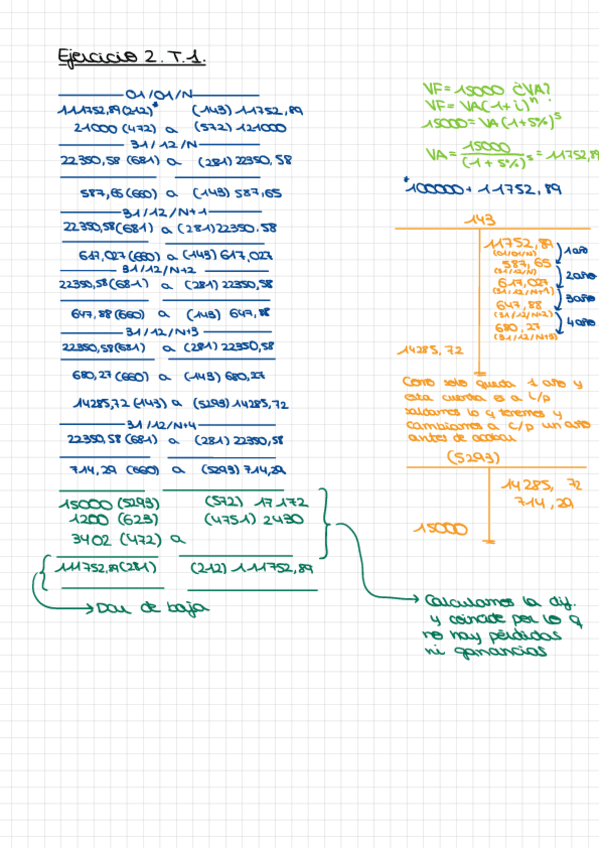 Ejercicio 2. T.1.
01/01/N
111752,89(212)* (143) 11752,89
21000 (472) a (572) 121000
31/12/N
22350,58 (681) a (281) 22350,58
587,65(660) a (143) 587,65
31/12/N+1
22350,58(681) a (281) 22350,58
617,027(660) a (143) 617,027
31/12/N+2
22350,58(681) a (281) 22350,58
647,88 (660) a (143) 647,88
31/12/N+3
22350,58(681) a (281) 22350,58
680,27 (660) a (143) 680,27
14285,72 (143) a (5293) 14285,72
31/12/N+4
22350,58 (681) a (281) 22350,58
714,29 (660) a (5293) 714,29
15000 (5293) (572) 17172
1200 (623) (4751) 2430
3402 (472) a
111752,89(281) (212) 111752,89
Dar de baja
VF = 15000 ¿VA?
VF = VA(1+i)^n
15000 = VA(1+5%)^5
VA = 15000 / (1+5%)^5 = 11752,89
*100000 + 11752,89
143
11752,89
(01/01/N)
1 año
587,65
(31/12/N)
2 año
617,027
(31/12/N+1)
3 año
647,88
(31/12/N+2)
4 año
680,27
(31/12/N+3)
14285,72
Como solo queda 1 año y
esta cuenta es a L/p
saldamos lo q tenemos y
cambiamos a c/p un año
antes de acabar
(5293)
14285,72
714,29
15000
Calculamos la dif.
y coincide por lo q
no hay pérdidas
ni ganancias